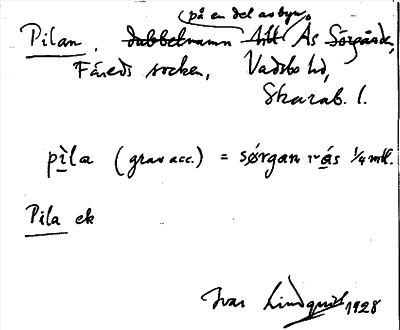 (på en del av byn)
Pilan, dubbelnamn till Ås Sörgården,
Fåreds socken, Vadsbo hd,
Skarab. l.
pila (grav acc.) = sørgan i ås 1/4 mtl.
Pila ek
Ivar Lindquist 1928